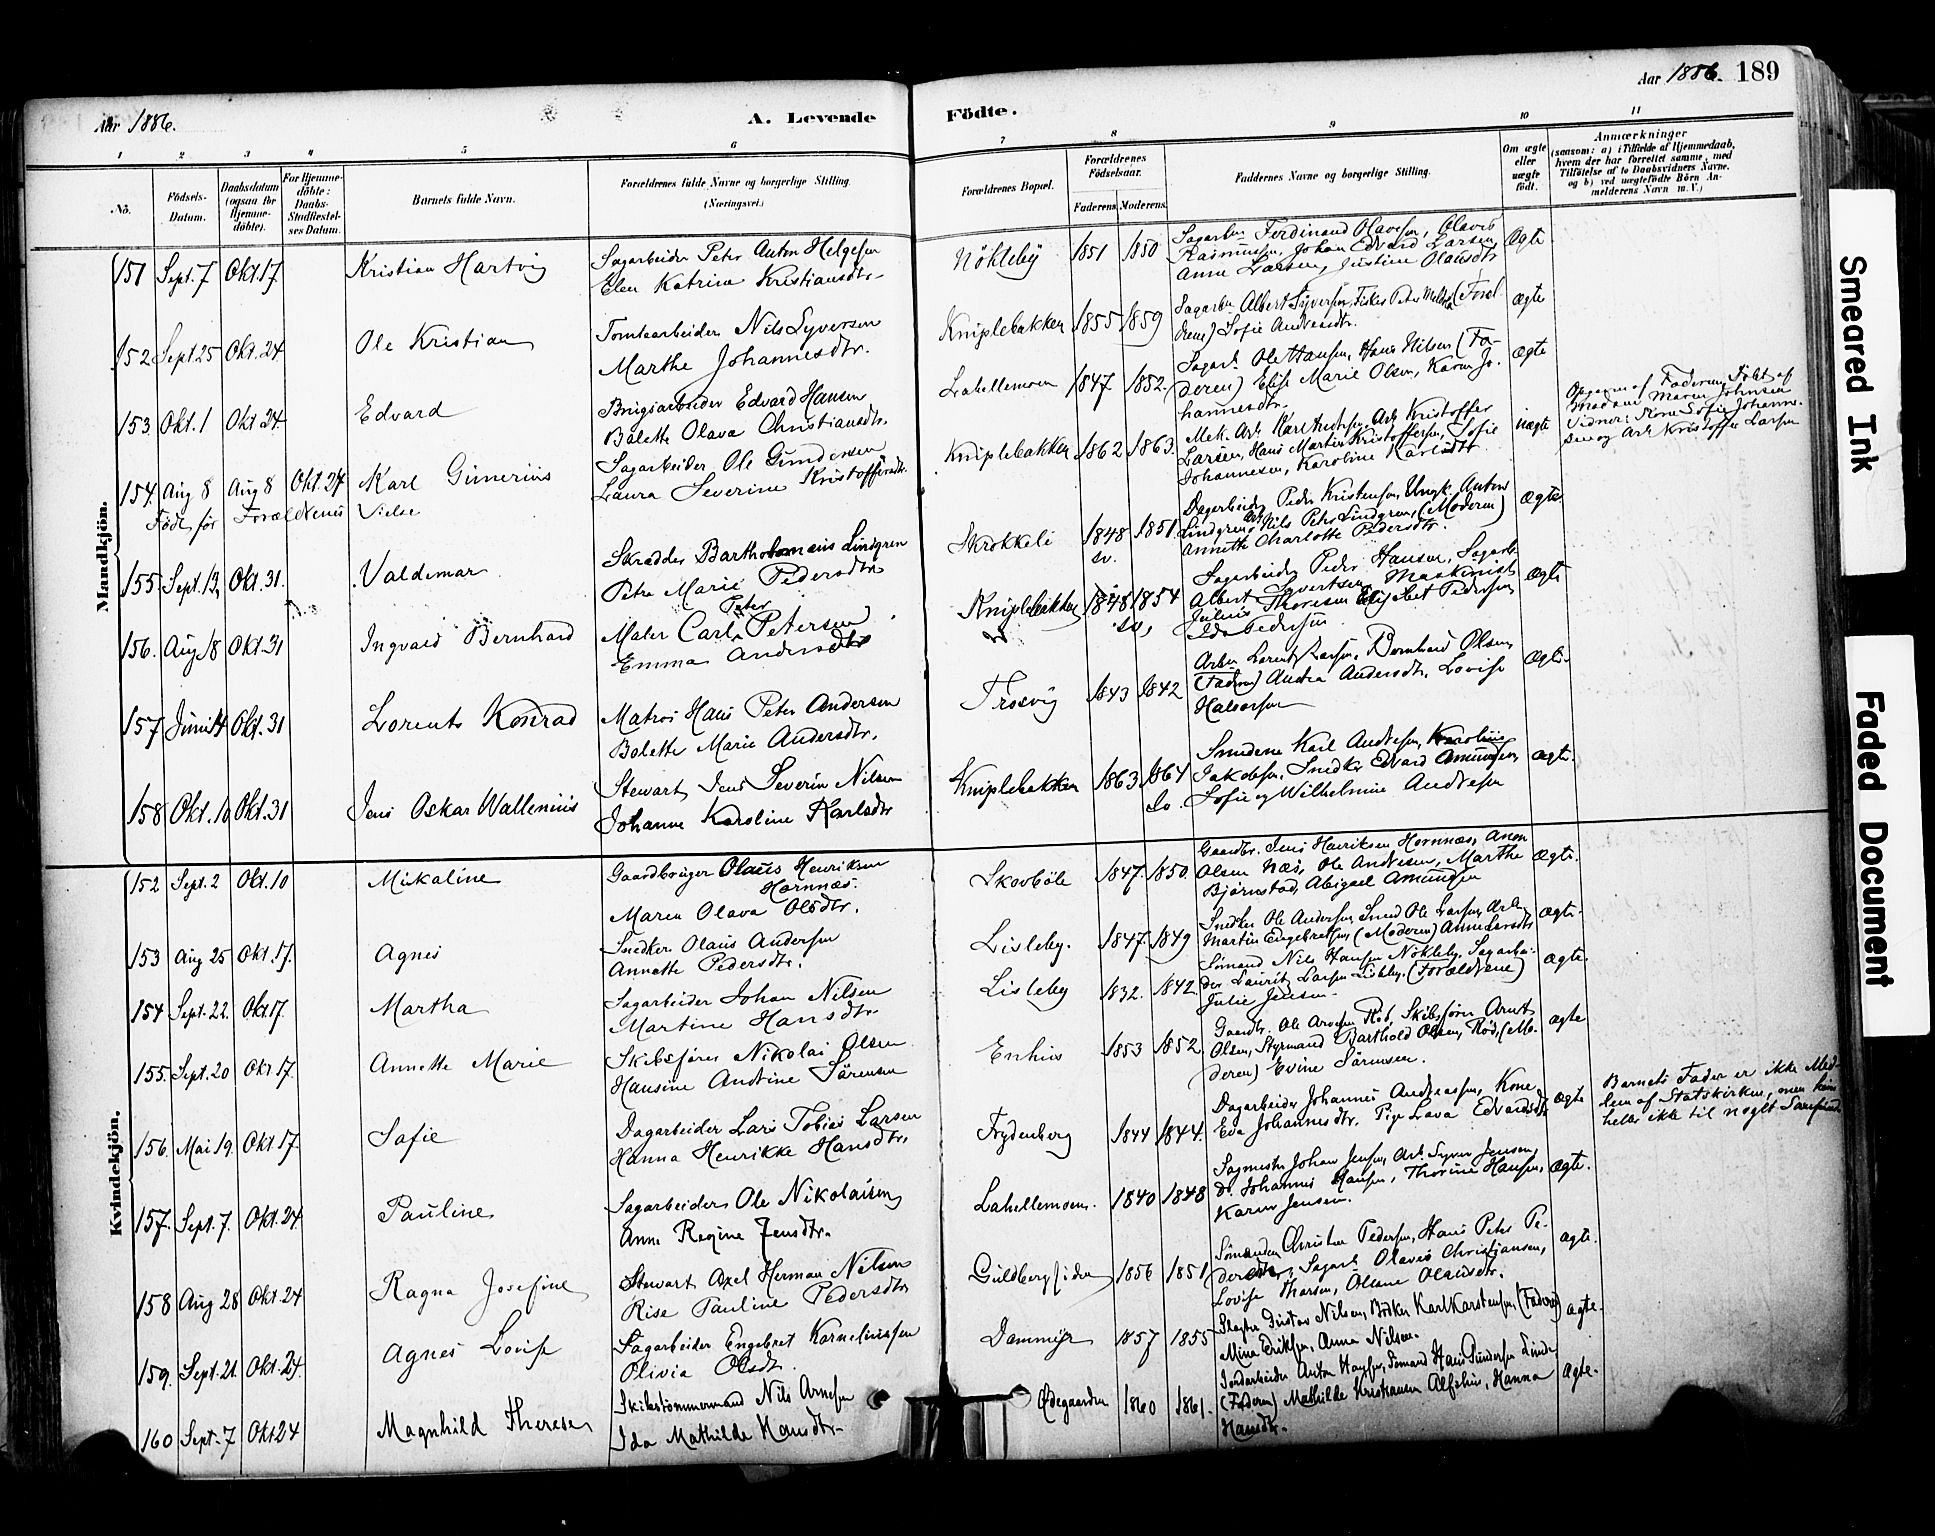 Aar 1886.
A. Levende
Födte.
Aar 1886. 189
1 2 3 4 5 6 7 8 9 10 11
No.
Födsels-Datum.
Daabsdatum (ogsaa for Hjemme-döbte).
For Hjemme-döbte: Daabs-Stadfæstel-ses Datum.
Barnets fulde Navn.
Forældrenes fulde Navne og borgerlige Stilling. (Næringsvei.)
Forældrenes Bopæl.
Forældrenes Födselsaar.
Faderens. Moderens.
Faddernes Navne og borgerlige Stilling.
Om ægte eller uægte födt.
Anmærkninger
(saasom: a) i Tilfælde af Hjemmedaab, hvem der har forrettet samme, med Tilföielse af to Daabsvidners Navne, og b) ved uægtefödte Börn Anmelderens Navn m. V.)
Mandkjön.
151 Sept. 7 Okt. 17. Kristian Hartvig
Sagarbeider Peter Anton Helgesen
Elen Katrina Kristiansdtr.
Nökleby 1851 1850
Sagarbr Ferdinand Olavesen, Olavus
Rasmussen, Johan Edvard Larsen,
Anne Larsen, Justine Olausdtr
Ægte
152 Sept 25 Okt. 24. Ole Kristian
Tomtearbeider Nils Syversen
Marthe Johannesdtr.
Kniplebakken 1855 1859
Sagarbr Albert Syversen, Fisker Peter (Foræl-
drene) Sofie Andreasdtr.
ægte
153. Okt. 1 Okt 24. Edvard
Brugsarbeider Edvard Hansen
Bolette Olava Christiansdtr.
Lahellemoen 1847. 1852.
Sagarb. Ole Hansen, Hans Nilsen (Fa-
deren) Elise Marie Olsen, Karen Jo-
hannesdtr.
ægte
154. Aug 8 Aug 8 Okt. 24 Karl Gunerius
Födt för Forældrenes Vielse
Sagarbeider Ole Gundersen
Laura Severine Kristoffersdtr.
Kniplebakken 1862 1863.
Mek. Arb. Kare Arb Kristoffer
Larsen, Hans Martin Kristoffersen, Sofie
Johannesen, Karoline Karlsdtr
uægte
Opgaven af Faderen. Döbt af
Madam Maren Johnsen
Vidner: Kone Sofie Johanne-
sen og Arb. Kristoffer Larsen
155. Sept. 13, Okt. 31. Valdemar
Skrædder Bartholomæus Lindgren
Petra Marie Pedersdtr
Skrokkeli 1848 sv. 1851
Dagarbeider Peder Kristensen, Ungk. Anton
Lindgren, Arb Nils Peter Lindgren, (Moderen)
Annette Charlotte Pedersdtr.
Ægte
156. Aug 18 Okt 31 Ingvald Bernhard
Maler Carl Peter Petersen
Emma Andersdtr
Kniplebakken 1848 sv, 1854
Sagarbeider Peder Hansen, Sagarb.
Albert Syvertsen, Maskinist
Julius Thoresen Elisabet Pedersen,
Ida Pedersen
Ægte
157 Juni 14 Okt. 31 Lorents Konrad
Matros Hans Peter Andersen
Bolette Marie Andersdtr.
Trosvig 1843 1842
Arbr. Lorents Larsen, Bernhard Olsen,
(Faderen) Andrea Andersdtr, Lovise
Halvorsen
Ægte.
158 Okt. 10 Okt. 31 Jens Oskar Wallenius
Stewart Jens Severin Nilsen
Johanne Karoline Karlsdtr
Kniplebakken 1863 1864 Sv.
Smedene Karl Andresen, Karolius
Jakobsen, Snedker Edvard Amundsen,
Sofie og Wilhelmine Andresen
ægte.
Kvindekjön.
152 Sept. 2 Okt. 10 Mikaline
Gaardbruger Olaus Henriksen
Hornnæs.
Maren Olava Olsdtr.
Skovböle 1847. 1850.
Gaardbr. Jens Henriksen Hornnæs, Anon
Olsen Næs, Ole Andresen, Marthe
Bjørnstad, Abigael Amundsen
Ægte.
153 Aug 25 Okt. 17. Agnes
Snedker Olaus Andersen
Annette Pedersdtr.
Lisleby. 1847. 1849
Snedker Ole Andersen, Smed Ole Larsen, Arb.
Martin Engebretsen, (Moderen) Anne Larsdtr
Ægte.
154 Sept. 22. Okt 17. Martha
Sagarbeider Johan Nilsen
Martine Hansdtr
Lisleby 1832. 1842.
Sömand Nils Hansen Nökleby, Sagarbei-
der Lauritz Larsen Lisleby, (Forældrene)
Julie Jensen
Ægte.
155. Sept. 20 Okt. 17. Annette Marie
Skibsförer Nikolai Olsen
Hansine Andrine Sörensen
Enhus 1853 1852.
Gaardbr. Ole Arnesen Röd, Skibsförer Arnt
Olsen, Styrmand Barthold Olsen, Röd, (Mo-
deren) Evine Sörensen.
ægte
156. Mai 19. Okt 17. Sofie
Dagarbeider Lars Tobias Larsen
Hanna Henrikke Hansdtr.
Frydenberg 1844 1844.
Dagarbeider Johannes Andreassen, Kone
Eva Johannesdtr. Pige Lava Edvardsdtr
Ægte
Barnets Fader er ikke Med-
lem af Statskirken, men hen-
hører ikke til noget Samfund
157. Sept. 7. Okt. 24 Pauline
Sagarbeider Ole Nikolaisen
Anne Regine Jensdtr.
Lahellemoen. 1840 1848
Sagmester Johan Jensen, Arb. Syver Jensen,
do. Johannes Hansen, Thorine Hansen,
Karen Jensen.
Ægte.
158 Aug 28 Okt. 24 Ragna Josefine
Stewart Axel Herman Nilsen
Risa Pauline Pedersdtr
Guldbergsiden 1856 1851
Sömanden Christen Pedersen, Hans Peter Pe-
dersen, Sagarb Olavus Christjansen,
Lovise Thorsen, Oliane Olausdtr.
ægte.
159. Sept. 21. Okt. 24. Agnes Lovise
Sagarbeider Engebret Korneliussen
Olivia Olsdtr.
Dammyr 1857 1855
Slagter Gustav Nilsen, Bödker Karl Karstensen (Faderen)
Mina Eriksen, Anna Nilsen.
ægte.
160 Sept. 7 Okt 24 Magnhild Therese
Skibstömmermand Nils Arnesen
Ida Mathilde Hansdtr.
Ödegaarden 1860 1861.
Jordarbeider Anton Hansen, Sömand Hans Gundersen Linde
(Faderen) Mathilde Kristiansen Alfshus, Hanna
Hansdtr.
Ægte.
Smeared Ink
Faded Document